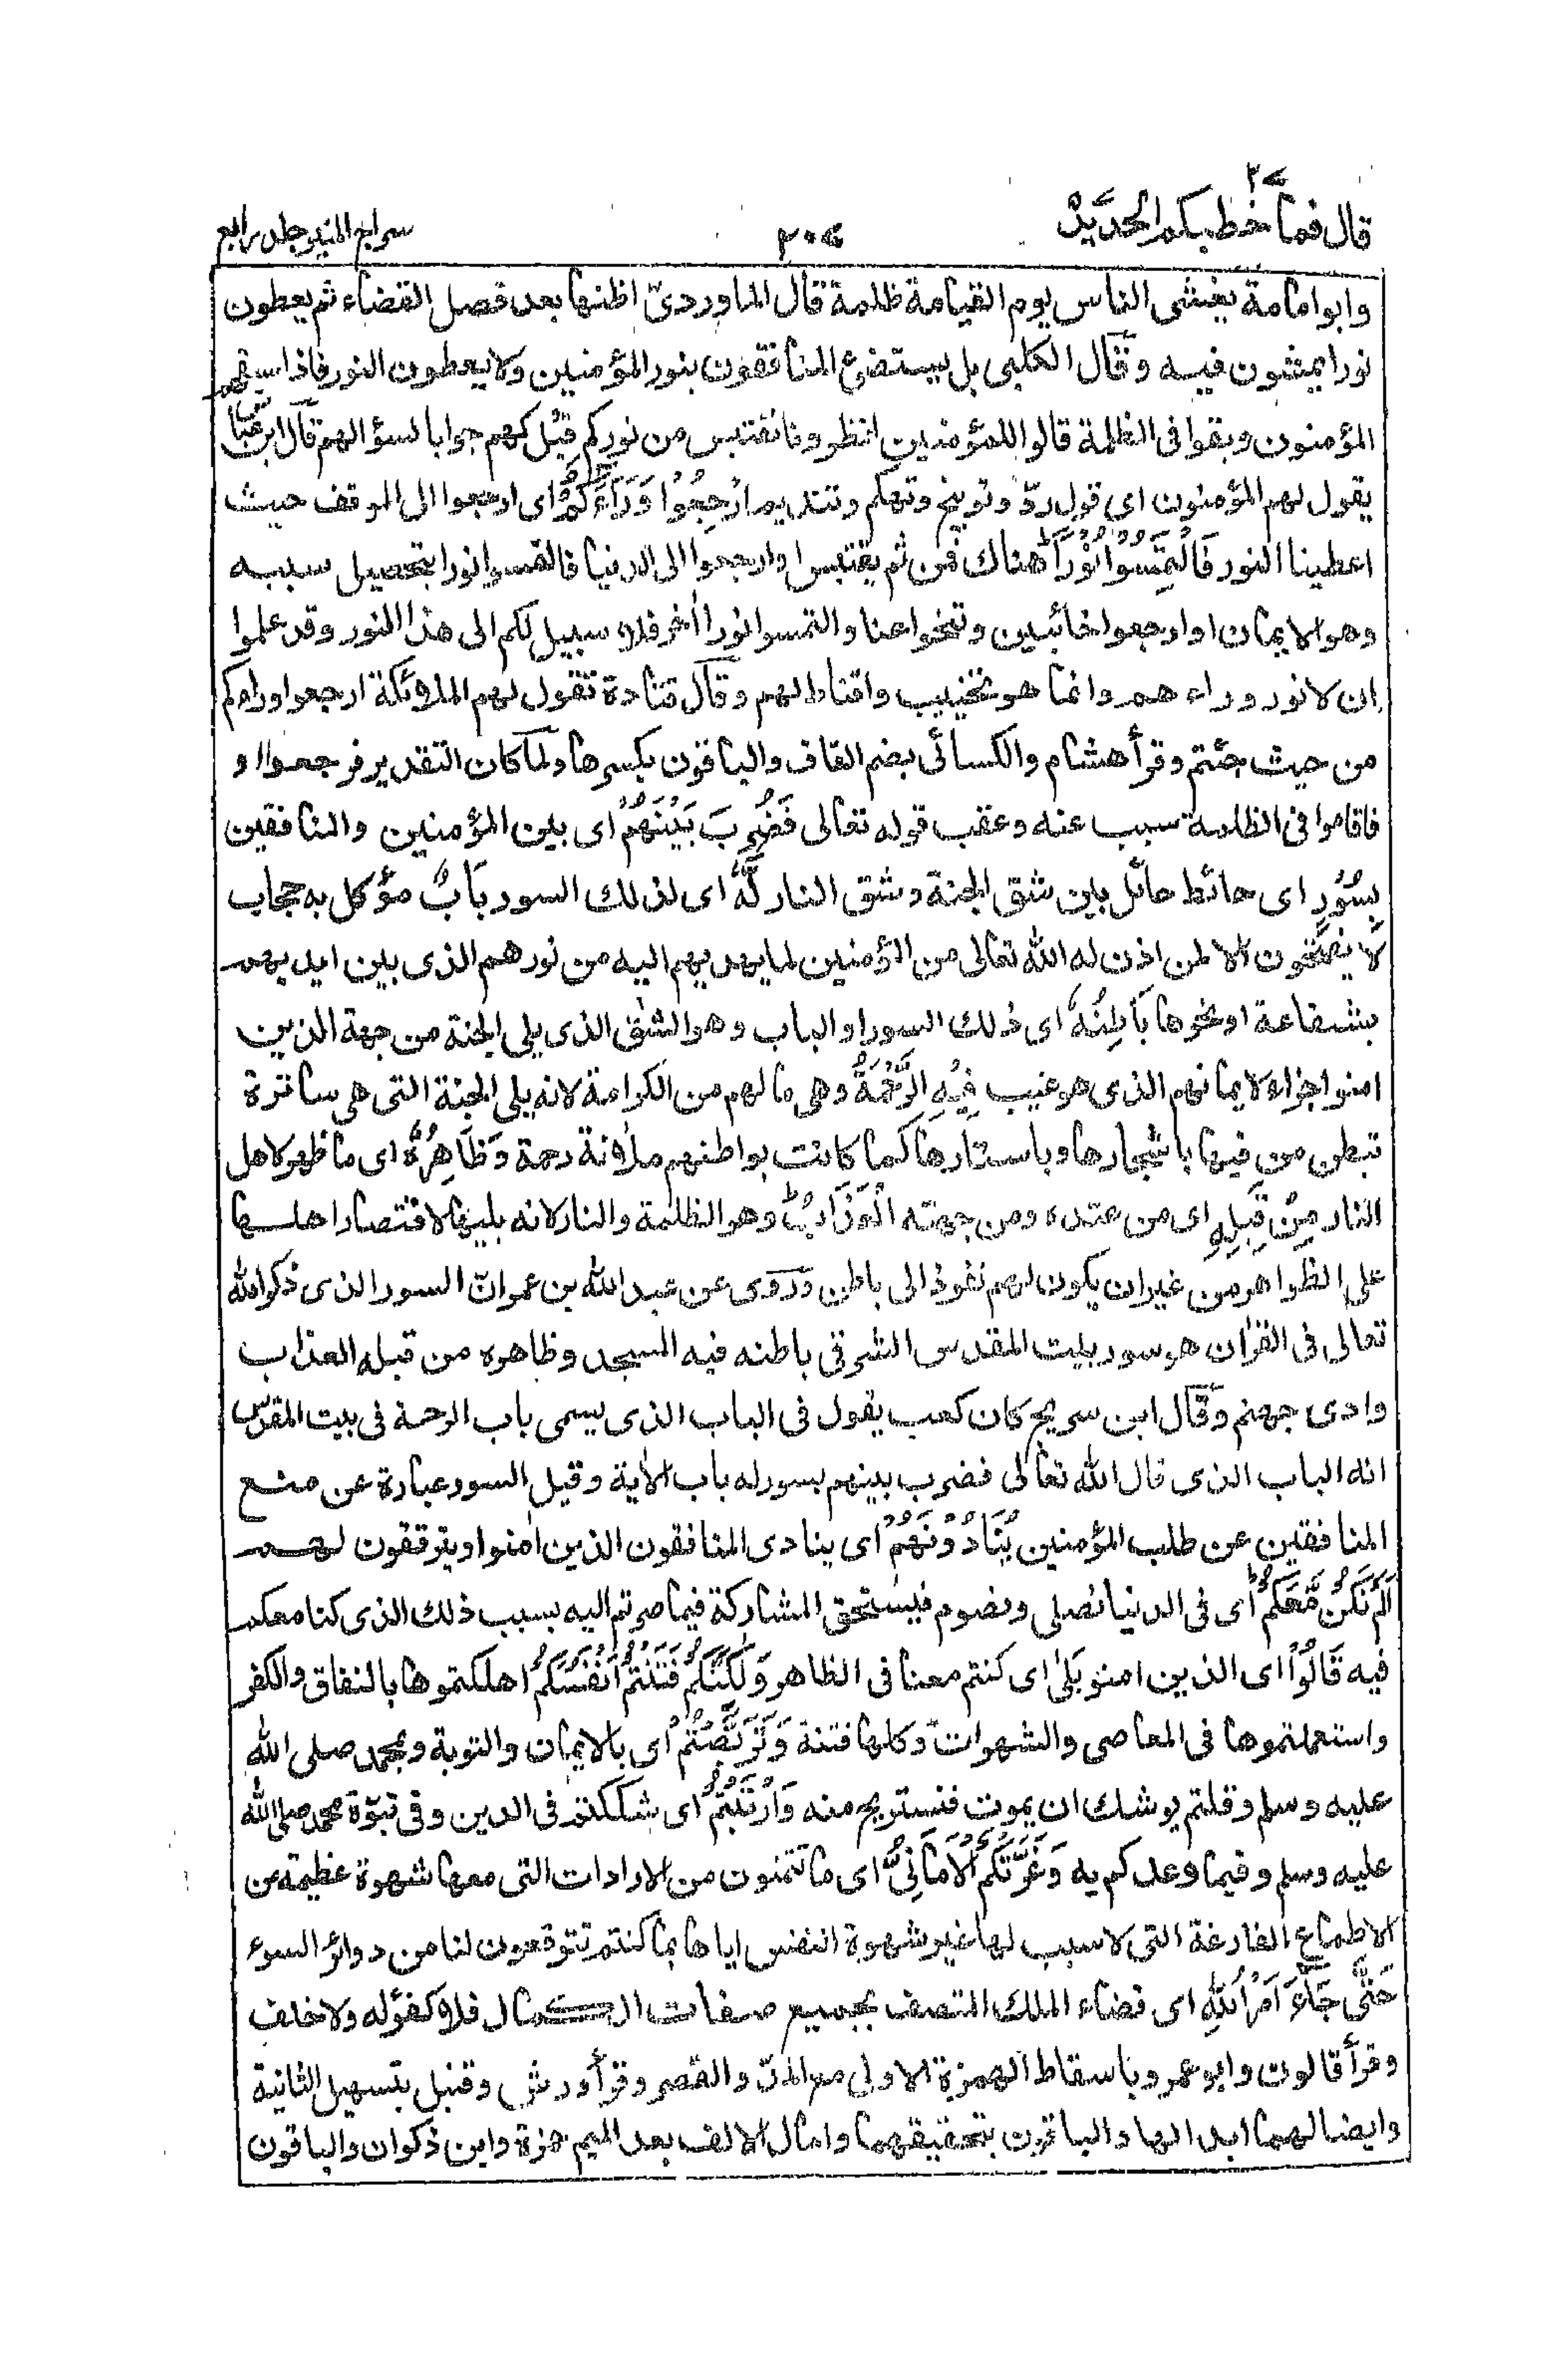 قال فما خطبكم ٢٧ الحديد
٢٠٤
سراج المنير جلد رابع
وابوامامة يغشى الناس يوم القيامة ظلمة قال الماوردىّ اظنها بعد فصل القضاء ثم يعطون
نورا يمشون فيه وقال الكلبى بل يستضئ المنافقون بنور المؤمنين ولا يعطون النور فاذا سبقهم
المؤمنون وبقوا فى الظلمة قالوا للمؤمنين انظرونا نقتبس من نوركم قِيْل لهم جوابا لسؤالهم قال ابن عباس
يقول لهم المؤمنون اى قول ردّ وتوبيخ وتهكم وتنديم ارْجِعُوْا وَرَآءَكُمْ اى ارجعوا الى الموقف حيث
اعطينا النور فَالْتَمِسُوْا نُوْرًا هناك فمن ثم يقتبس او ارجعوا الى الدنيا فالتمسوا نورا بتحصيل سببه
وهو الايمان او ارجعوا خائبين وتنحوا عنا والتمسوا نورا اٰخر فلا سبيل لكم الى هذا النور وقد علموا
ان لا نور وراء هم وانما هو تخييب واقناط لهم وقال قتادة تقول لهم الملائكة ارجعوا وراءكم
من حيث جئتم وقرأ هشام والكسائى بضم القاف والباقون بكسرها ولما كان التقدير فرجعوا او
فاقاموا فى الظلمة سبب عنه وعقب قوله تعالى فَضُرِبَ بَيْنَهُمْ اى بين المؤمنين والمنافقين
بِسُوْرٍ اى حائط حائل بين شق الجنة وشق النار لَّهٗ اى لذلك السور بَابٌ مؤكل به حجاب
لا يفتحون الا لمن اذن له الله تعالى من المؤمنين لما يهديهم اليه من نورهم الذى بين ايديهم
بشفاعة او نحوها بَاطِنُهٗ اى ذلك السور او الباب وهو الشق الذى يلى الجنة من جهة الذين
امنوا جزاء لايمانهم الذى هو غيب فِيْهِ الرَّحْمَةُ وهى ما لهم من الكرامة لانه يلى الجنة التى هى ساترة
تبطن من فيها باشجارها وباستارها كما كانت بواطنهم ملاٰنة رحمة وَظَاهِرُهٗ اى ما ظهر لاهل
النار مِنْ قِبَلِهِ اى من عنده ومن جهته الْعَذَابُ وهو الظلمة والنار لانه يليها لاقتصار اهلها
على الظواهر من غير ان يكون لهم نفوذ الى باطن وروى عن عبد الله بن عمر انّ السور الذى ذكر الله
تعالى فى القراٰن هو سور بيت المقدس الشرقى باطنه فيه المسجد وظاهره من قبله العذاب
وادى جهنم وقال ابن سريج كان كعب يقول فى الباب الذى يسمى باب الرحمة فى بيت المقدس
انه الباب الذى قال الله تعالى فضرب بينهم بسور له باب الاٰية وقيل السور عبارة عن منع
المنافقين عن طلب المؤمنين يُنَادُوْنَهُمْ اى ينادى المنافقون الذين اٰمنوا ويترققون لهم
اَلَمْ نَكُنْ مَّعَكُمْ اى فى الدنيا نصلى ونصوم فنستحق المشاركة فيما صرتم اليه بسبب ذلك الذى كنا معكم
فيه قَالُوْا اى الذين امنو بَلٰى اى كنتم معنا فى الظاهر وَلٰكِنَّكُمْ فَتَنْتُمْ اَنْفُسَكُمْ اهلكتموها بالنفاق والكفر
واستعملتموها فى المعاصى والشهوات وكلها فتنة وَتَرَبَّصْتُمْ اى بالايمان والتوبة وبمحمد صلى الله
عليه وسلم وقلتم يوشك ان يموت فنستريح منه وَارْتَبْتُمْ اى شككتم فى الدين وفى نبوّة محمد صلى الله
عليه وسلم وفيما وعدكم به وَغَرَّتْكُمُ الْاَمَانِيُّ اى ما تتمنون من الارادات التى معها شهوة عظيمة من
الاطماع الفارغة التى لا سبب لها غير شهوة النفس اياها بما كنتم تتوقعون لنا من دوائر السوء
حَتّٰى جَآءَ اَمْرُ اللهِ اى قضاء الملك المتصف بجميع صفات الكمال فلا كفؤ له ولا خلف
وقرأ قالون وابو عمرو باسقاط الهمزة الاولى مع المدّ والقصر وقرأ ورش وقنبل بتسهيل الثانية
وايضا لهما ابدالها والباقون بتحقيقهما وامال الالف بعد الميم حمزة وابن ذكوان والباقون